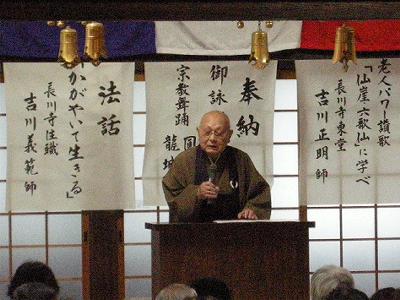 老人パワー讃歌
「仙崖六歌仙」に学べ
長川寺東堂
吉川正明師
奉納
御詠
宗教舞踊
龍城
法話
「かがやいて生きる」
長川寺住職
吉川義範師